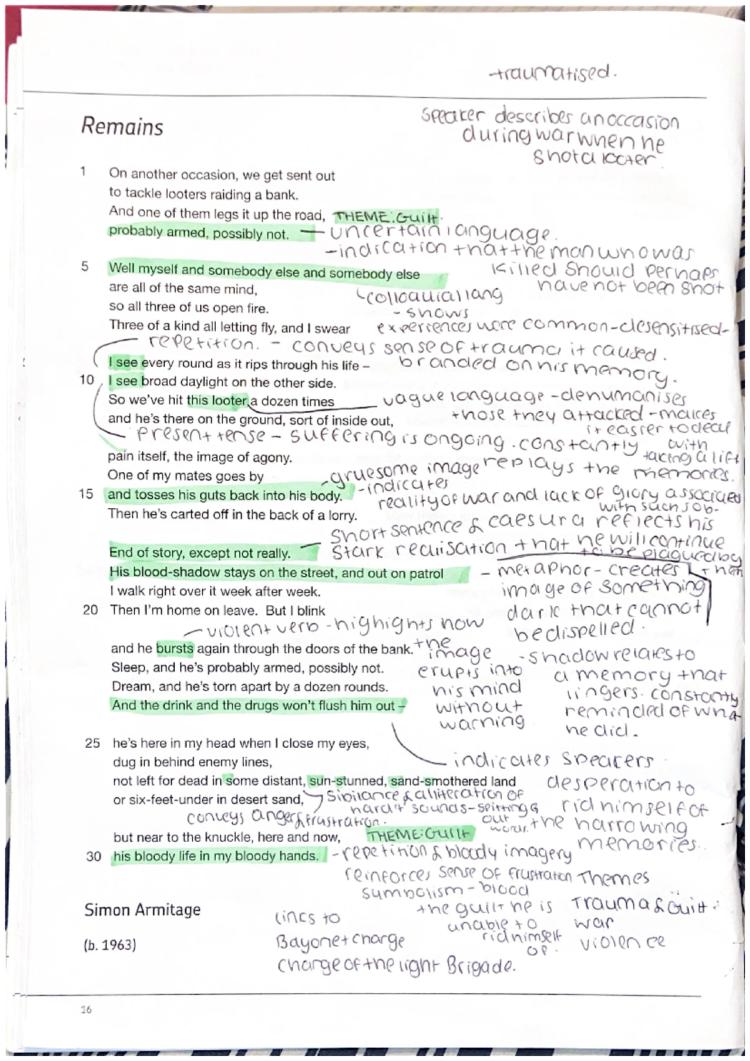 traumatised.
Remains
Speaker describes an occasion
during war when he
shot a looter.
1 On another occasion, we get sent out
to tackle looters raiding a bank.
And one of them legs it up the road, THEME: Guilt.
probably armed, possibly not. – uncertain language.
- indication that the man who was
killed should perhaps
have not been shot
5 Well myself and somebody else and somebody else
are all of the same mind,
colloquial lang
so all three of us open fire.
- shows
Three of a kind all letting fly, and I swear
experiences were common - desensitised -
repetition. - conveys sense of trauma it caused.
I see every round as it rips through his life –
branded on his memory.
10 I see broad daylight on the other side.
So we've hit this looter a dozen times
vague language - denumanises
those they attacked - makes
it easier to deal
with
taking a life
and he's there on the ground, sort of inside out,
present tense - suffering is ongoing. constantly
replays the memories.
pain itself, the image of agony.
One of my mates goes by
- gruesome image
- indicates
reality of war and lack of glory associated
with such job.
15 and tosses his guts back into his body.
Then he's carted off in the back of a lorry.
short sentence & caesura reflects his
stark realisation that he will continue
to be plagued by
End of story, except not really.
His blood-shadow stays on the street, and out on patrol
- metaphor - creates
image of something
dark that cannot
be dispelled.
I walk right over it week after week.
20 Then I'm home on leave. But I blink
violent verb - highights how
the
image
erupts into
his mind
without
warning.
- shadow relates to
a memory that
lingers. constantly
reminded of wha
he did.
and he bursts again through the doors of the bank.
Sleep, and he's probably armed, possibly not.
Dream, and he's torn apart by a dozen rounds.
And the drink and the drugs won't flush him out –
25 he's here in my head when I close my eyes,
indicates spearers
desperation to
rid himself of
the harrowing
memories.
dug in behind enemy lines,
not left for dead in some distant, sun-stunned, sand-smothered land
or six-feet-under in desert sand,
sibilance & alliteration of
hard t sounds - spitting
out
conveys anger & frustration.
but near to the knuckle, here and now, THEME: Guilt
30 his bloody life in my bloody hands.
- repetition & bloody imagery
reinforces sense of frustration
symbolism - blood
the guilt he is
unable to
rid himself
of.
Themes
Trauma & Guilt.
war
violence
Simon Armitage
(b. 1963)
lincs to
Bayonet charge
charge of the light Brigade.
26